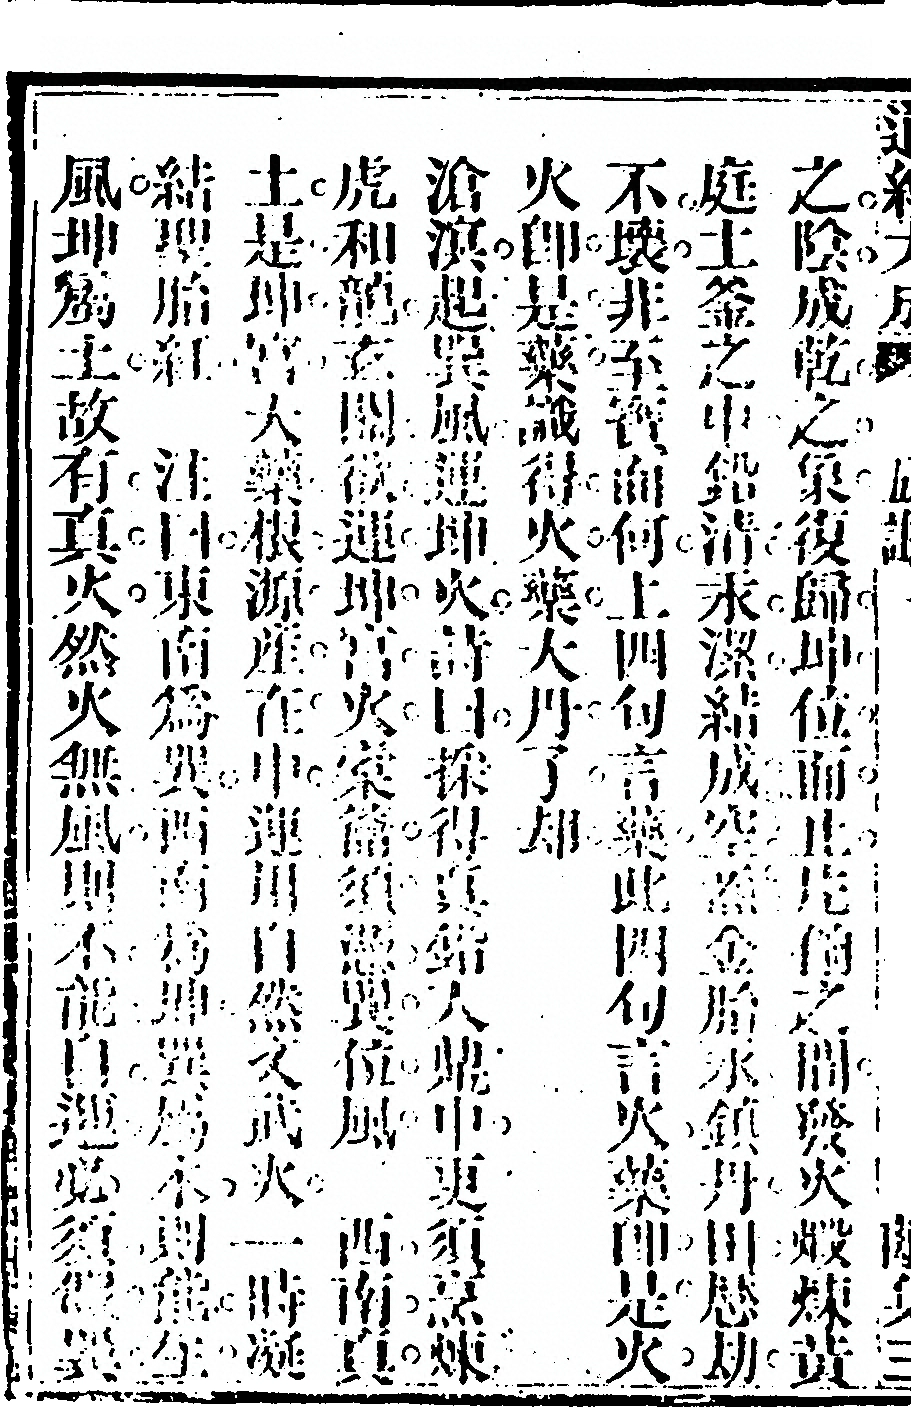 之陰成乾之象復歸坤位而止片餉之間發火煆煉黃
庭土釜之中鉛清汞潔結成空炁金胎永鎮丹田歷劫
不壞非至寶而何上四句言藥此四句言火藥即是火
火即是藥識得火藥大丹了却
滄溟起巽風運坤火詩曰採得真鉛入鼎中更須烹煉
虎和龍玄關欲運坤宮火橐籥須憑巽位風 西南真
土是坤宮大藥根源產在中運用自然文武火一時凝
結聖胎紅 注曰東南為巽西南為坤巽屬木則能生
風坤屬土故有真火然火無風則不能自運必須假巽